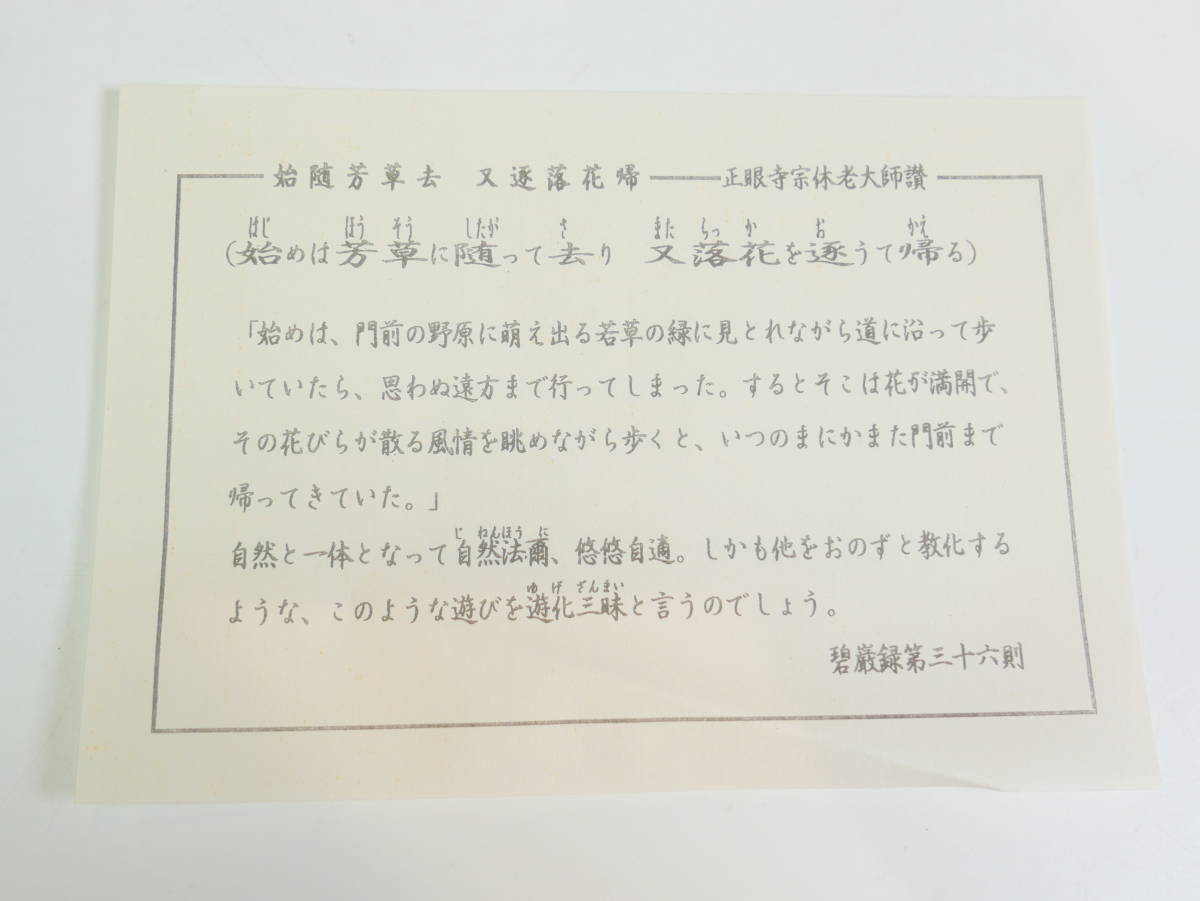 始随芳草去　又逐落花帰　正眼寺宗休老大師讃
はじ　ほう　そう　したが　さ　また　らっ　か　お　かえ
（始めは芳草に随って去り　又落花を逐うて帰る）
「始めは、門前の野原に萌え出る若草の緑に見とれながら道に沿って歩
いていたら、思わぬ遠方まで行ってしまった。するとそこは花が満開で、
その花びらが散る風情を眺めながら歩くと、いつのまにかまた門前まで
帰ってきていた。」
じ　ねんほう　に
自然と一体となって自然法爾、悠悠自適。しかも他をおのずと教化する
ゆ　げ　ざんまい
ような、このような遊びを遊化三昧と言うのでしょう。
碧巌録第三十六則